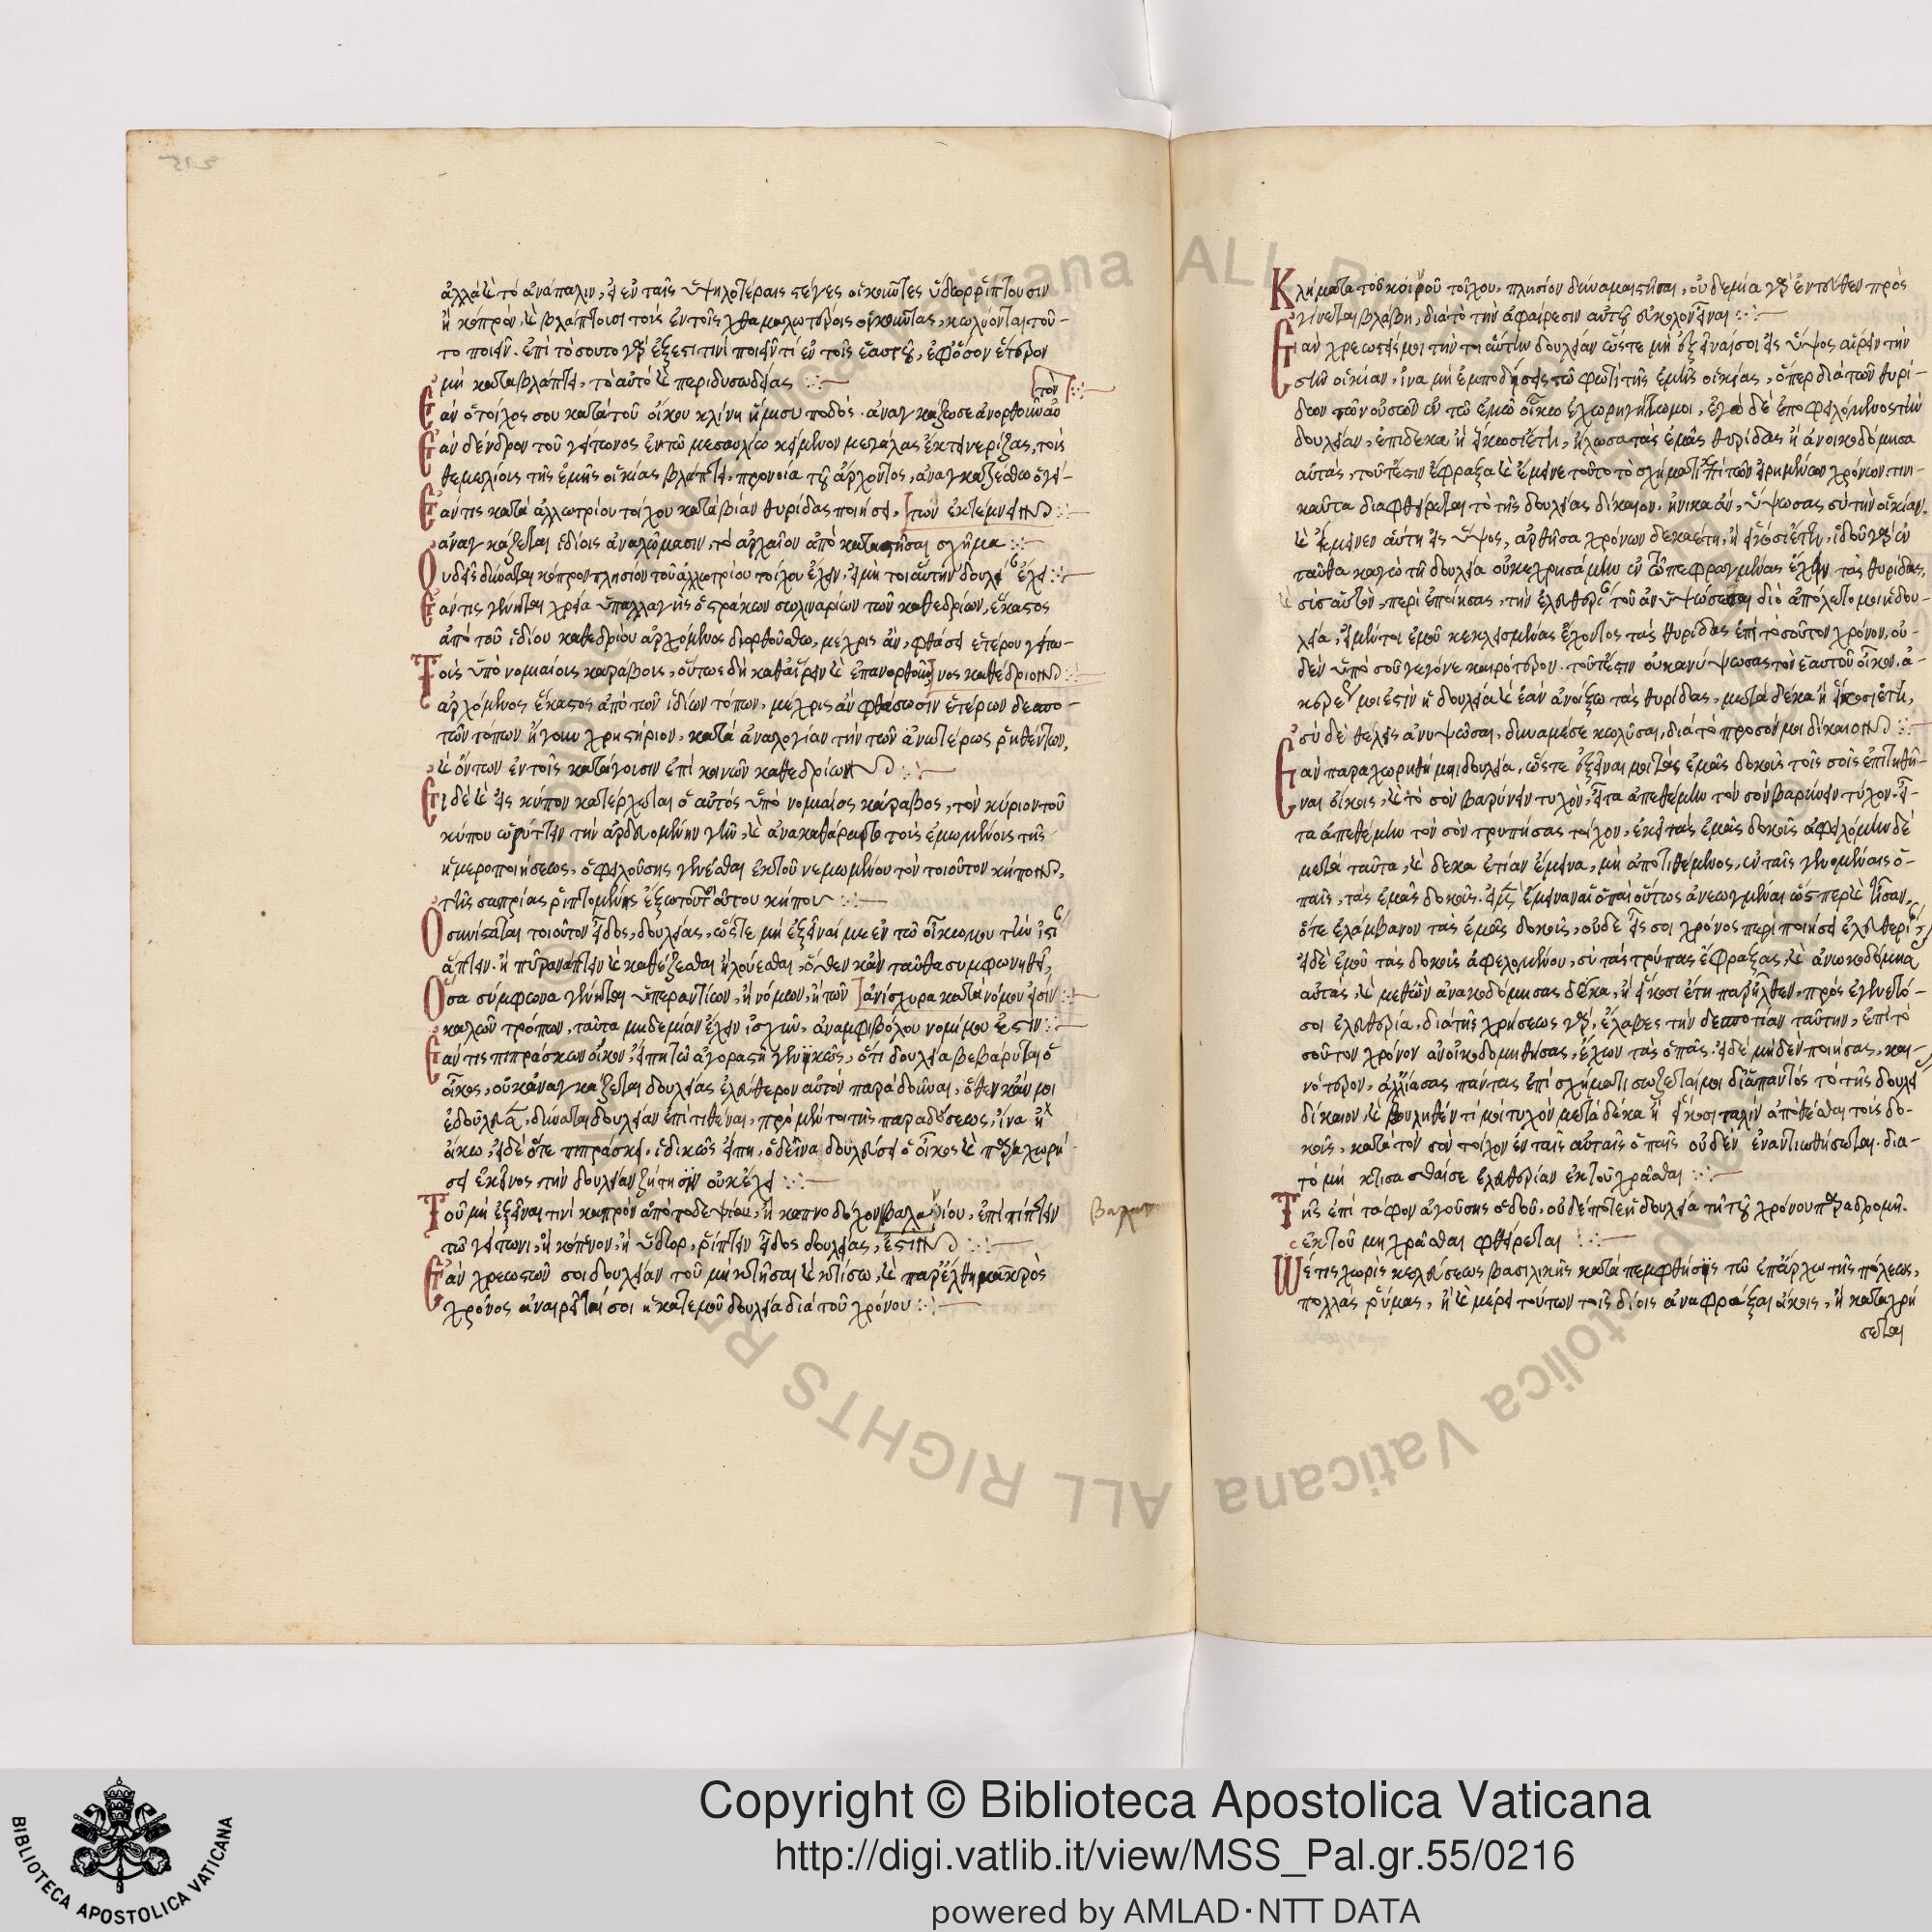 ἀλλὰ καὶ τὸ ἀνάπαλιν, εἰ ἐν ταῖς ὑψηλοτέραις στέγες οἰκοῦντες ὕδωρ ῥίπτουσιν
ἢ κόπρον, καὶ βλάπτουσι τοὺς ἐν τοῖς χθαμαλωτέροις οἰκοῦντας, κωλύονται τοῦ-
το ποιεῖν. ἐπὶ τοσοῦτο γὰρ ἔξεστί τινι ποιεῖν τί ἐν τοῖς ἑαυτοῦ, ἐφ' ὅσον ἕτερον
μὴ καταβλάπτει, τὸ αὐτὸ καὶ περὶ δυσωδείας
τὸν
Ἐὰν ὁ τοῖχος σου κατὰ τοῦ οἴκου κλίνῃ ἥμισυ ποδός. ἀναγκάζω σε ἀνορθοῦν αὐ
Ἐὰν δένδρον τοῦ γείτωνος ἐν τῶ μεσαυλίω κείμενον μεγάλας ἐκτείνει ῥίζας, τοῖς
θεμελίοις τῆς ἐμῆς οἰκίας βλάπτει. προνοία τοῦ ἄρχοντος, ἀναγκαζέσθω ὁ γεί-
Ἐάν τις κατὰ ἀλλωτρίου τοίχου κατὰ βίαν θυρίδας ποιήσει, των ἐκτέμνειν
ἀναγκάζεται ἰδίοις ἀναλώμασιν, τὸ ἀρχαῖον ἀποκαταστῆσαι σχῆμα
Οὐδεὶς δύναται κόπρον πλησίον τοῦ ἀλλωτρίου τοίχου ἔχειν, εἰ μὴ τοιαύτην δουλείαν ἔχει
Ἐάν τις γένηται χρεία ὑπαλλαγῆς ὀστράκων σωληναρίων τῶν καθεδρίων, ἕκαστος
ἀπὸ τοῦ ἰδίου καθεδρίου ἀρχόμενος διορθούσθω, μέχρις ἂν, φθάσει ἑτέρου γείτω-
Τοὺς ὑπὸ νομαίοις καράβοις, οὕτως δὴ καθαίρειν καὶ ἐπανορθοῦν νος καθέδριον
ἀρχόμενος ἕκαστος ἀπὸ τῶν ἰδίων τόπων, μέχρις ἂν φθάσωσιν ἑτέρων δεσπο-
τῶν τόπων ἤγουν χρηστήριον, κατὰ ἀναλογίαν τὴν τῶν ἀνωτέρως ῥηθέντων,
καὶ ὄντων ἐν τοῖς κατάγοισιν ἐπὶ κοινῶν καθεδρίων
Εἰ δὲ καὶ εἰς κῆπον κατέρχεται ὁ αὐτὸς ὑπὸ νομαίος κάραβος, τὸν κύριον τοῦ
κήπου ὠρύττειν τὴν ἀρδευομένην γῆν, καὶ
ἡμεροποιήσεως, ὀφειλούσης γενέσθαι ἐκ τοῦ νεμωμένου τὸν τοιοῦτον κῆπον,
τῆς σαπρίας ῥιπτομένης ἔξω τοῦ τοιούτου κήπου
Ὁ συνίσταται τοιοῦτον εἶδος, δουλείας, ὥστε μὴ ἐξεῖναί με ἐν τῶ οἴκω μου
ἅπτειν. ἢ πῦραν ἅπτειν καὶ καθέζεσθαι ἢ λούεσθαι, ὅθεν κἂν ταῦθα συμφωνηθεῖ,
Ὅσα σύμφωνα γένηται ὑπεραντίων, ἢ νόμων, ἢ τῶν ἀνίσχυρα κατὰ νόμου εἰσίν
καλῶν τρόπων, ταῦτα μηδεμίαν ἔχειν ἰσχῦν, ἀναμφιβόλου νομίμου ἐστίν
Ἐάν τις πιπράσκων οἶκον, εἴπη τῶ ἀγοραστῆ γενικῶς, ὅτι δουλεία βεβάρυται ὁ
οἶκος, οὐκ ἀναγκάζεται δουλείας ἐλεύθερον αὐτὸν παραδοῦναι, ὅθεν κἂν μοι
δύναται δουλείαν ἐπιτιθέναι, πρὸ μέν τοι τῆς παραδόσεως, ἵνα
οἴκω, εἰ δὲ ὅτε πιπράσκει, ἰδικῶς εἴπη, ὁ δεῖνα δουλεύσει ὁ οἶκος καὶ παραχωρή
σει ἐκεῖνος στὴν δουλείαν ζήτησιν οὐκ ἔχει
Τοῦ μὴ ἐξεῖναι τινὶ καπρὸν ἀπὸ τοδεψίου, ἢ καπνοδόχον βαλανίου, ἐπιπίπτειν
τῶ γείτωνι, ἢ κόπνον, ἢ ὕδτορ, ῥίπτειν εἶδος δουλείας, ἐστὶν
Ἐὰν χρεωστῶν σοι δουλείαν τοῦ μὴ κτῆσαι καὶ κτίσω, καὶ παρέλθη μακρὸς
χρόνος ἀναιρεῖταί σοι ἡ κατ' ἐμοῦ δουλεία διὰ τοῦ χρόνου
Κλήματα τοῦ κοινοῦ τοίχου, πλησίον δύναμαι στῆσαι, οὐδεμία γὰρ ἐντεῦθεν πρὸς
γίνεται βλάβη, διὰ τὸ τὴν ἀφαίρεσιν αὐτοῦ εὔκολον εἶναι
Ἐὰν χρεωστεῖς μοι τὴν τιαύτην δουλείαν ὥστε μὴ ἐξεῖναί σοι εἰς ὕψος αἴρειν τὴν
σὴν οἰκίαν, ἵνα μὴ ἐμποδήσεις τῶ φωτὶ τῆς ἐμῆς οἰκίας, ὅπερ διὰ τῶν θυρί-
δων τῶν οὐσῶν ἐν τῶ ἐμῶ οἴκω ἐχωρηγήτωμοι, ἐγὼ δὲ ἐποφειλόμενος τὴν
δουλείαν, ἐπὶ δεκα ἢ εἴκωσι ἔτη, ἥλωσα τὰς ἐμᾶς θυρίδας ἢ ἀνοικοδόμησα
αὐτάς, τοῦτέστιν ἔφραξα καὶ ἔμεινε τοῦτο τὸ σχῆμα ἐπὶ τῶν εἰρημένων χρόνων. τινι-
καῦτα διαφθείρεται τὸ τῆς δουλείας δίκαιον. ἡνίκα ἂν, ὕψωσας, σὺ τὴν οἰκίαν,
καὶ ἔμεινεν αὕτη εἰς ὕψος, ἀρθῆσα χρόνων δεκαέτη, ἢ εἴκοσι ἔτη, ἰδοὺ γὰρ ἐν
ταῦθα καγὼ τῆ δουλεία οὐκ ἐχρησάμην ἐν ὧ πεφραγμένας ἔχειν τὰς θυρίδας,
διὸ ἀπόλετο μοι ἡ δου-
λεία, εἰ μέντοι ἐμοῦ κεκλεισμένας ἔχοντος τὰς θυρίδας ἐπὶ τοσοῦτον χρόνον, οὐ-
δὲν ὑπὸ σοῦ γεγόνε καιρότερον. τοῦτέστιν οὐκ ἀνύψωσας τὸν ἑαυτοῦ οἶκον, ἀ-
μοι ἐστὶν ἡ δουλεία καὶ ἐὰν ἀνοίξω τὰς θυρίδας, μετὰ δέκα ἢ εἴκοσι ἔτη,
σὺ δὲ θέλεις ἀνυψῶσαι, δύναμέ σε κωλῦσαι, διὰ τὸ προσόν μοι δίκαιον
Ἐὰν παραχωρηθῆ μὴ δουλεία, ὥστε ἐξεῖναι μοι τὰς ἐμᾶς δοκοῖς τοῖς σοῖς ἐπιτηθῆ-
ναι οἴκοις, καὶ τὸ σὸν βαρύνειν τυχὸν, εἶτα ἀπεθέμην τὸν σὸν βαρύνειν τύχον. εἶ-
τα ἀπεθέμην τὸν σὸν τρυπήσας τοίχον, ἐκεῖ τὰς ἐμᾶς δοκοῖς ἀφειλόμην δὲ
μετὰ ταῦτα, καὶ δεκα ἐτίαν ἔμεινα, μὴ ἀποτιθέμενος, ἐν ταῖς γενομέναις ὀ-
παῖς, τὰς ἐμᾶς δοκοῖς. ἔμειναν αἱ ὀπαὶ οὕτως ἀνεωγμέναι ὥσπερ καὶ ἦσαν,
ὅτε ἐλάμβανον τὰς ἐμᾶς δοκοῖς, οὐδὲ εἷς σοι χρόνος περιποιήσει ἐλευθερίαν
εἰ δὲ ἐμοῦ τὰς δοκοῖς ἀφελομένου, σὺ τὰς τρύπας ἔφραξας, καὶ ἀνωκοδόμησα
αὐτάς, καὶ μεθ' ὧν ἀνακοδόμησας δέκα, ἢ εἴκοσι ἔτη παρῆλθεν, πρὸς ἐγένετό-
σοι ἐλευθερία, διὰ τῆς χρήσεως γὰρ, ἔλαβες τὴν δεσποτίαν ταύτην, ἐπὶ τὸ
σοῦτον χρόνον ἀνοικοδομηθήσας, ἔχων τὰς ὀπᾶς. εἰ δὲ μηδὲν ποιήσας, και-
νότερον, ἀλλ' ἐάσας πάντας ἐπὶ σχήματι σώζεταί μοι διάπαντός τὸ τῆς δουλεί
δίκαιον, καὶ βουληθέν τί μοι τυχὸν μετὰ δέκα ἢ εἴκοσι παλίν ἀποθέσθαι τοὶς δο-
κοῖς, κατὰ τὸν σὸν τοίχον ἐν ταῖς αὐταῖς ὀπαῖς οὐδὲν ἐναντιωθήσεται. δια-
τὸ μὴ κτίσασθαί σε ἐλευθερίαν ἐκ τοῦ χρᾶσθαι
Τῆς ἐπὶ τάφον ἀγούσης ὁδοῦ, οὐδέποτε ἡ δουλεία τῆ τοῦ χρόνου παραδρομῆ.
ἐκ τοῦ μὴ χρᾶσθαι φθείρεται
Ὥστέ τις χωρὶς κελεύσεως βασιλικῆς κατὰ πεμφθήσης τῶ ἐπάρχω τῆς πόλεως,
πολλὰς ῥύμας, ἢ καὶ μέρει τούτων τοῖς δίοις ἀναφράξαι οἴκοις, ἢ καταχρή
σεται
Copyright © Biblioteca Apostolica Vaticana
http://digi.vatlib.it/view/MSS_Pal.gr.55/0216
powered by AMLAD·NTT DATA
BIBLIOTECA APOSTOLICA VATICANA